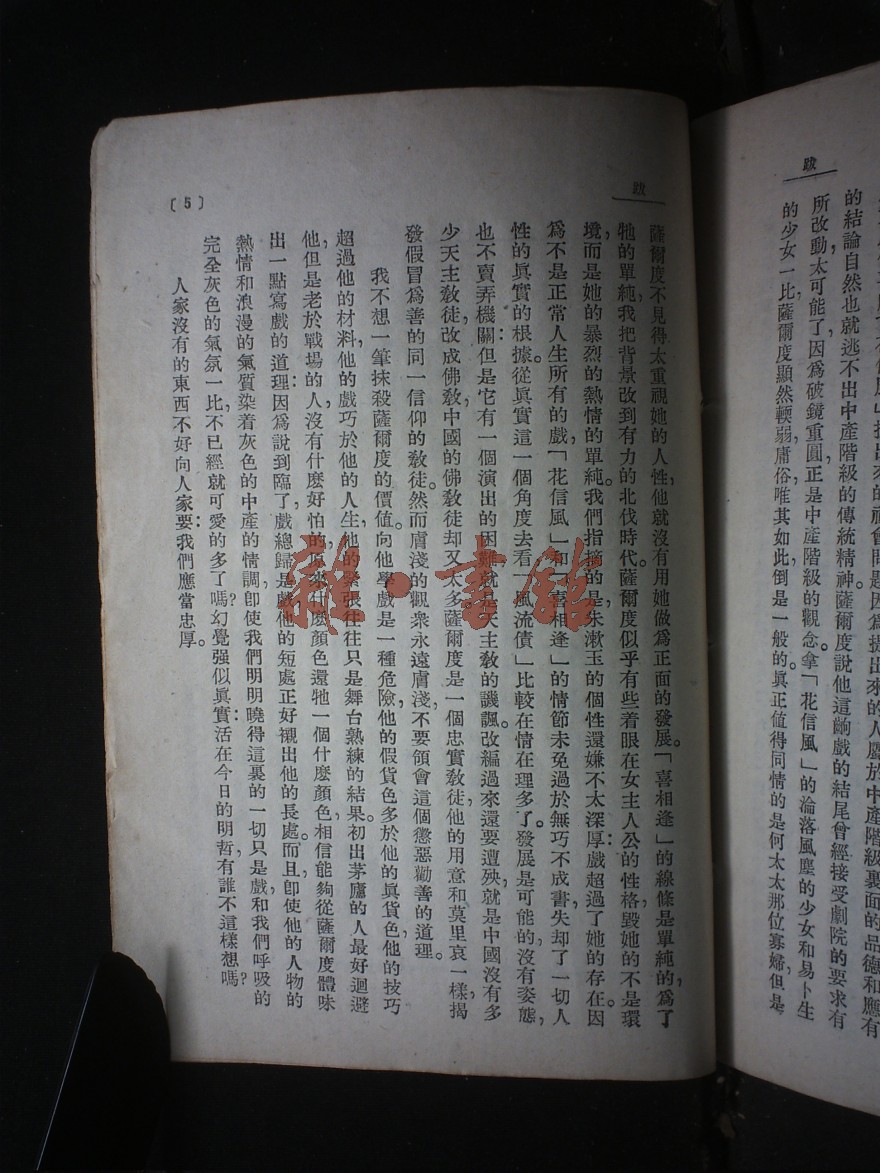 跋
的結論自然也就逃不出中產階級的傳統精神。薩爾度說他這齣戲的結尾曾經接受劇院的要求有
所改動太可能了,因爲破鏡重圓,正是中產階級的觀念。拿「花信風」的淪落風塵的少女和易卜生
的少女一比,薩爾度顯然輭弱,庸俗,唯其如此,倒是一般的。眞正值得同情的是何太太那位寡婦,但是
跋
薩爾度不見得太重視她的人性,他就沒有用她做爲正面的發展。「喜相逢」的線條是單純的,爲了
牠的單純,我把背景改到有力的北伐時代。薩爾度似乎有些着眼在女主人公的性格,毀她的不是環
境,而是她的暴烈的熱情的單純。我們指摘的是,朱漱玉的個性還嫌不太深厚:戲超過了她的存在。因
爲不是正常人生所有的戲,「花信風」和「喜相逢」的情節未免過於無巧不成書,失却了一切人
性的眞實的根據。從眞實這一個角度去看,「風流債」比較在情在理多了。發展是可能的,沒有姿態,
也不賣弄機關:但是它有一個演出的困難,就是天主教的譏諷。改編過來還要遭殃,就是中國沒有多
少天主教徒,改成佛教,中國的佛教徒却又太多。薩爾度是一個忠實教徒,他的用意和莫里哀一樣,揭
發假冒爲善的同一信仰的教徒。然而膚淺的觀衆永遠膚淺,不要領會這個懲惡勸善的道理。
我不想一筆抹殺薩爾度的價值。向他學戲是一種危險,他的假貨色多於他的眞貨色,他的技巧
超過他的材料,他的戲巧於他的人生,他的緊張往往只是舞台熟練的結果。初出茅廬的人最好迴避
他,但是老於戰場的人,沒有什麼好怕的,原來什麼顏色還牠一個什麼顏色,相信能夠從薩爾度體味
出一點寫戲的道理:因爲說到臨了,戲總歸是戲,他的短處正好襯出他的長處。而且,卽使他的人物的
熱情和浪漫的氣質染着灰色的中產的情調,卽使我們明明曉得這裏的一切只是戲,和我們呼吸的
完全灰色的氣氛一比,不已經就可愛的多了嗎?幻覺强似眞實:活在今日的明哲,有誰不這樣想嗎?
人家沒有的東西不好向人家要:我們應當忠厚。
〔5〕
雜·書館